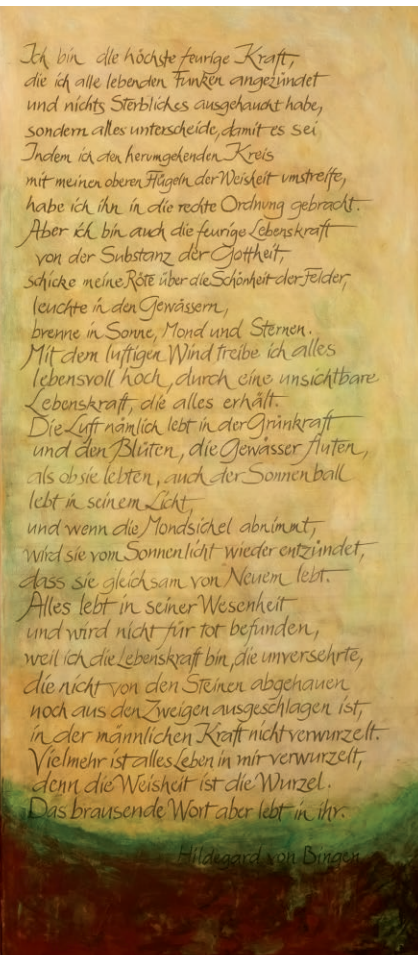 Ich bin die höchste feurige Kraft,
die ich alle lebenden Funken angezündet
und nichts Sterbliches ausgehaucht habe,
sondern alles unterscheide, damit es sei
Indem ich den herumgehenden Kreis
mit meinen oberen Flügeln der Weisheit umstreife,
habe ich ihn in die rechte Ordnung gebracht.
Aber ich bin auch die feurige Lebenskraft
von der Substanz der Gottheit,
schicke meine Röte über die Schönheit der Felder,
leuchte in den Gewässern,
brenne in Sonne, Mond und Sternen.
Mit dem luftigen Wind treibe ich alles
lebensvoll hoch, durch eine unsichtbare
Lebenskraft, die alles erhält.
Die Luft nämlich lebt in der Grünkraft
und den Blüten, die Gewässer fluten,
als ob sie lebten, auch der Sonnenball
lebt in seinem Licht,
und wenn die Mondsichel abnimmt,
wird sie vom Sonnenlicht wieder entzündet,
dass sie gleichsam von Neuem lebt.
Alles lebt in seiner Wesenheit
und wird nicht für tot befunden,
weil ich die Lebenskraft bin, die unversehrte,
die nicht von den Steinen abgehauen
noch aus den Zweigen ausgeschlagen ist,
in der männlichen Kraft nicht verwurzelt.
Vielmehr ist alles Leben in mir verwurzelt,
denn die Weisheit ist die Wurzel.
Das brausende Wort aber lebt in ihr.
Hildegard von Bingen